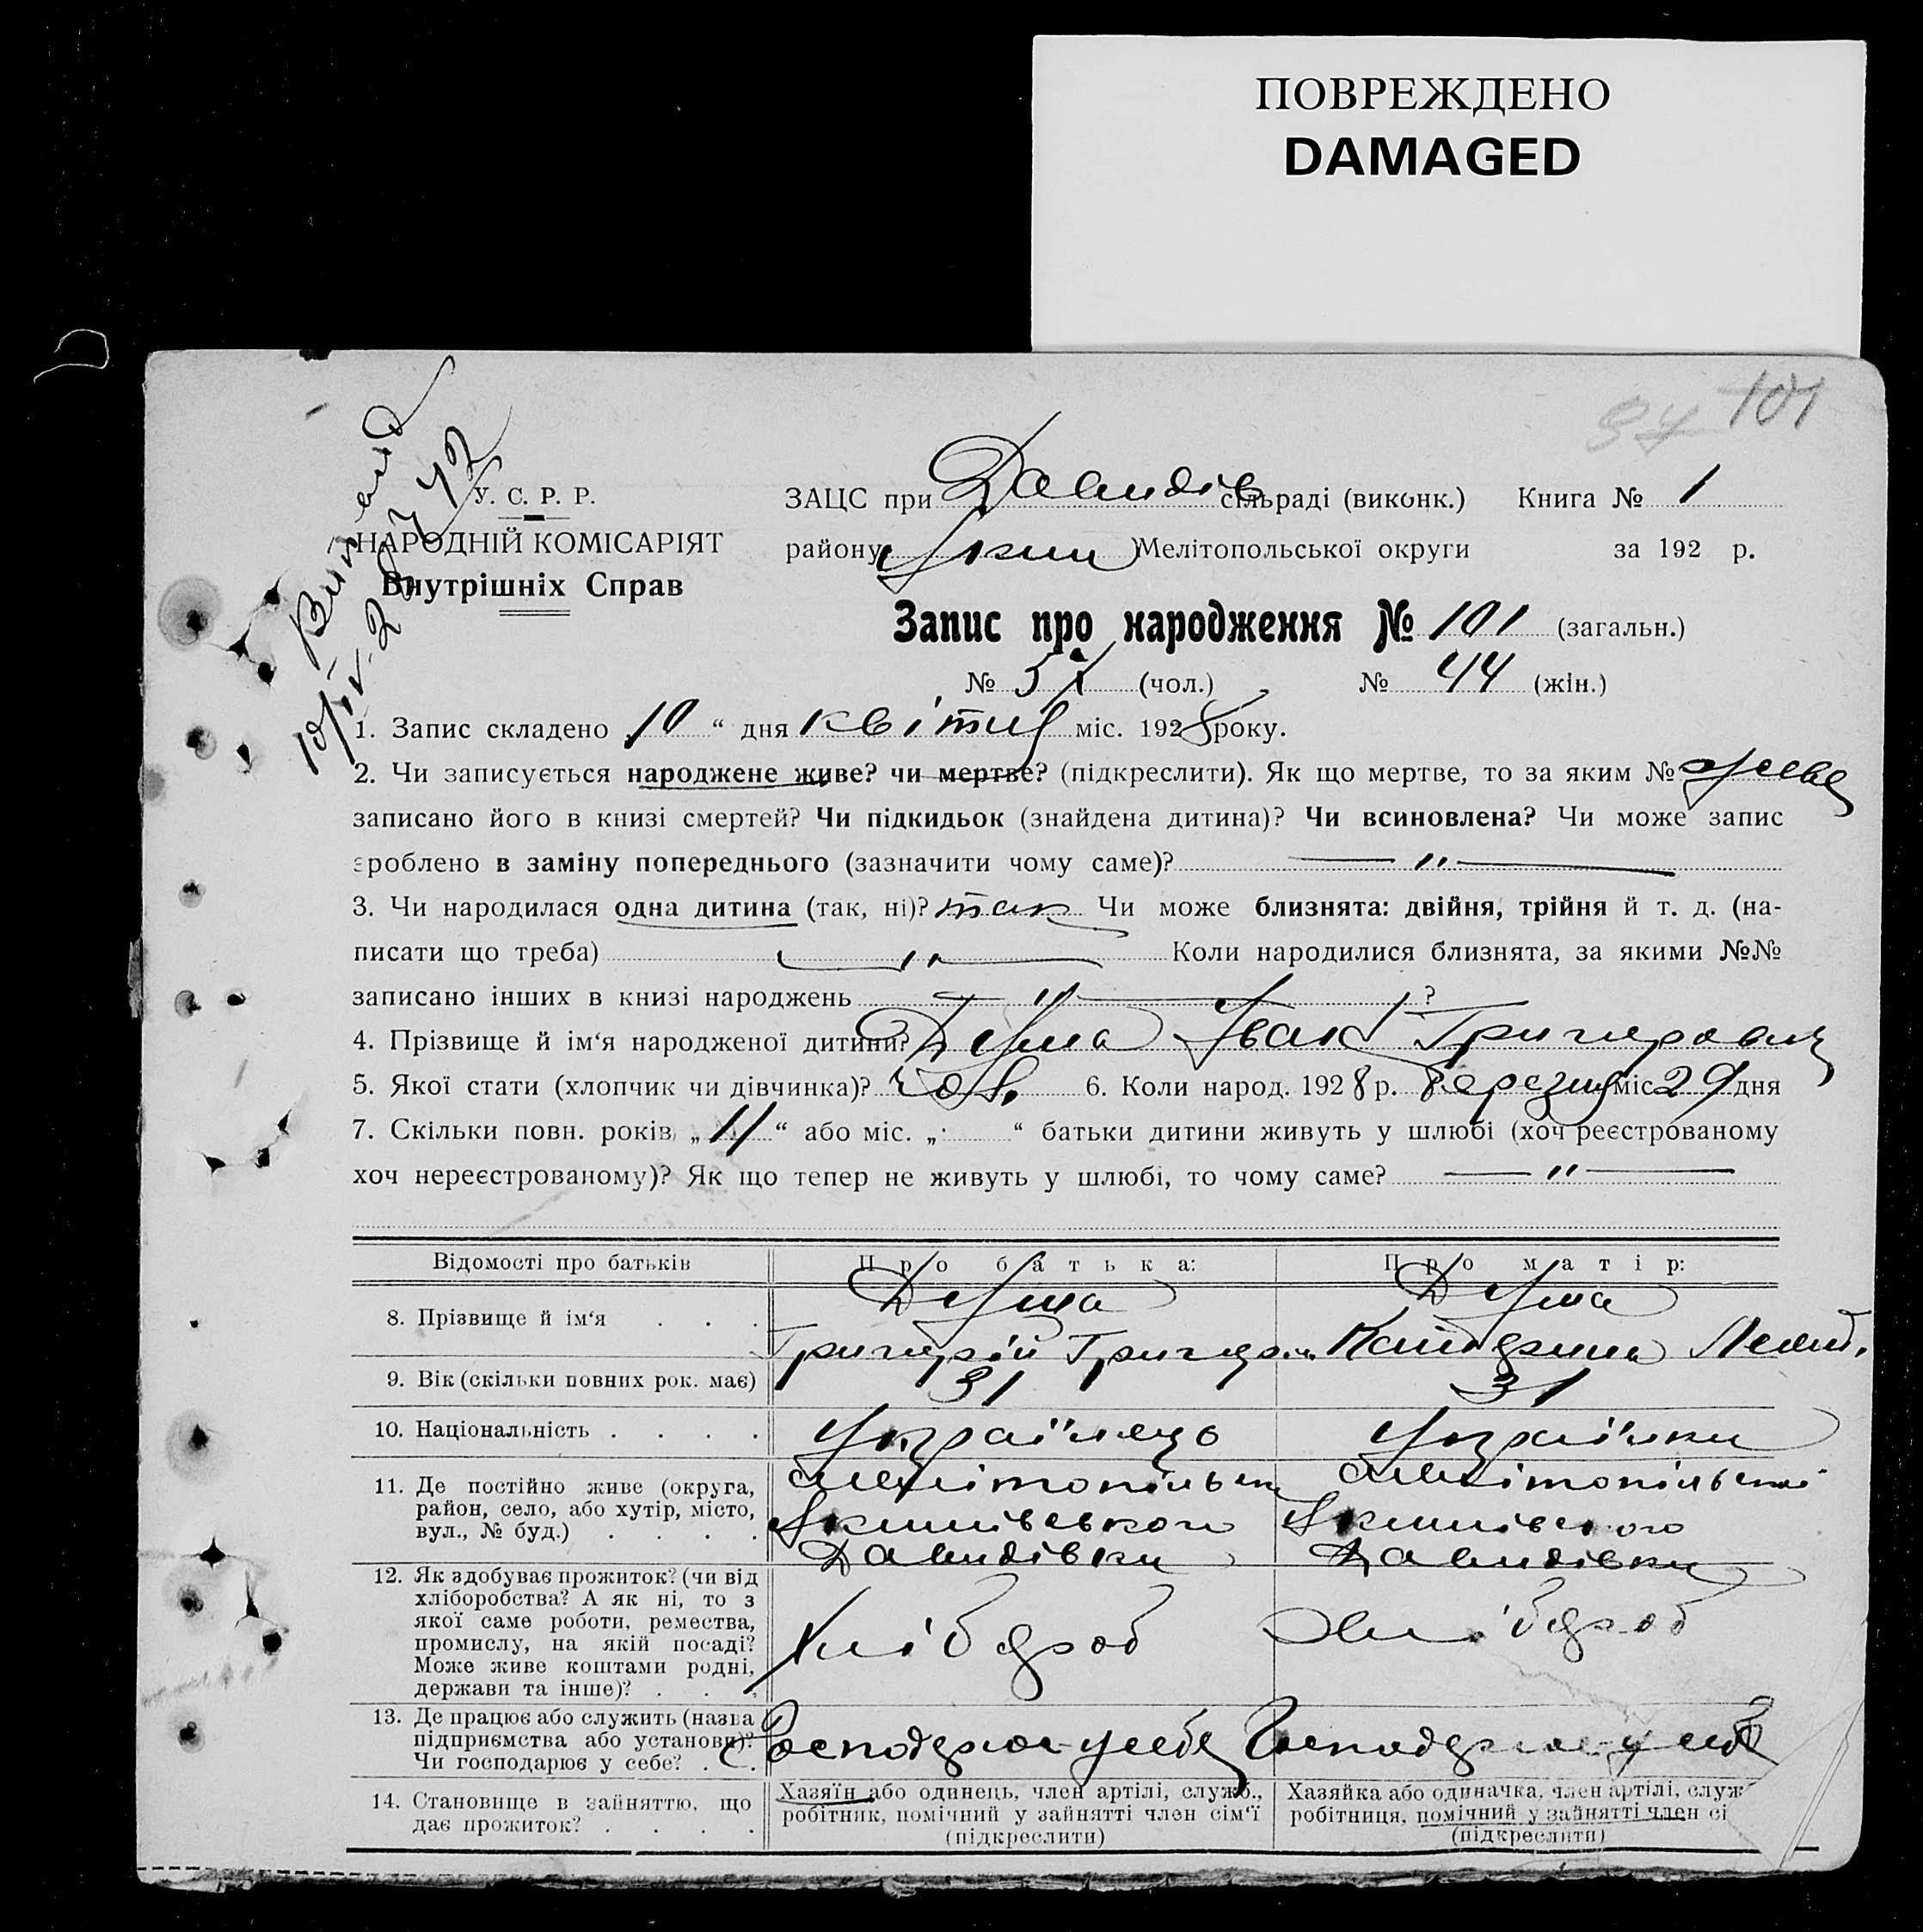 ПОВРЕЖДЕНО
DAMAGED
101
Витяг
10/IV-28 У 42
У. С. Р. Р.
НАРОДНІЙ КОМІСАРІЯТ
Внутрішніх Справ
ЗАЦС при Давидів сільраді (виконк.) Книга № 1
району Яким Мелітопольської округи за 192 р.
Запис про народження № 101 (загальн.)
№ 57 (чол.) № 44 (жін.)
1. Запис складено 10 “ дня квітня міс. 1928 року.
2. Чи записується народжене живе? чи мертве? (підкреслити). Як що мертве, то за яким № живе
записано його в книзі смертей? Чи підкидьок (знайдена дитина)? Чи всиновлена? Чи може запис
зроблено в заміну попереднього (зазначити чому саме)? — „ —
3. Чи народилася одна дитина (так, ні)? так Чи може близнята: двійня, трійня й т. д. (на-
писати що треба) — „ — Коли народилися близнята, за якими №№
записано інших в книзі народжень — „ — ?
4. Прізвище й ім‘я народженої дитини? Іван Григорович
5. Якої стати (хлопчик чи дівчинка)? чол. 6. Коли народ. 1928 р. березня міс 29 дня
7. Скільки повн. років „ 11 “ або міс. „ “ батьки дитини живуть у шлюбі (хоч реєстрованому
хоч нереєстрованому)? Як що тепер не живуть у шлюбі, то чому саме? — „ —
Відомості про батьків Про батька: Про матір:
8. Прізвище й ім‘я . . .
Григорій Григоров. Катерина
9. Вік (скільки повних рок. має) 31 31
10. Національність . . . . Українець Українка
11. Де постійно живе (округа, Мелітопільськ Мелітопільської
район, село, або хутір, місто, Якимівського Якимівського
вул., № буд.) . . . . Давидівки Давидівки
12. Як здобуває прожиток? (чи від
хліборобства? А як ні, то з
якої саме роботи, ремества, Хлібороб Хлібороб
промислу, на якій посаді?
Може живе коштами родні,
держави та інше)? . . .
13. Де працює або служить (назва
підприємства або установи)? Господарює у себе Господарює у себе
Чи господарює у себе? . .
14. Становище в зайняттю, що
дає прожиток? . . . .
Хазяїн або одинець, член артілі, служб.,
робітник, помічний у зайнятті член сім‘ї
(підкреслити)
Хазяйка або одиначка, член артілі, служ
робітниця, помічний у зайнятті член сі
(підкреслити)